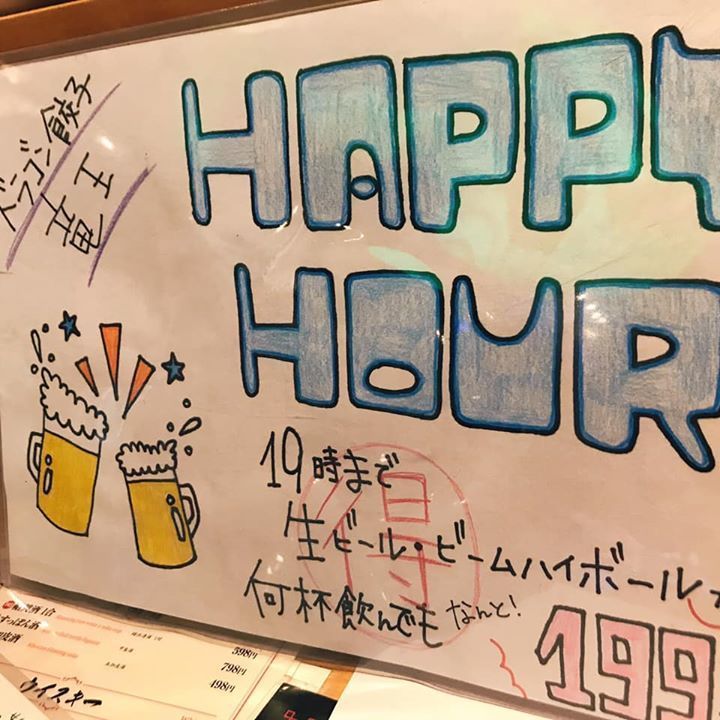 ドラゴン餃子
竜王
HAPPY
HOUR
19時まで
得
生ビール・ビームハイボールが
何杯飲んでも なんと!
199
598円
798円
498円
ウイスキー